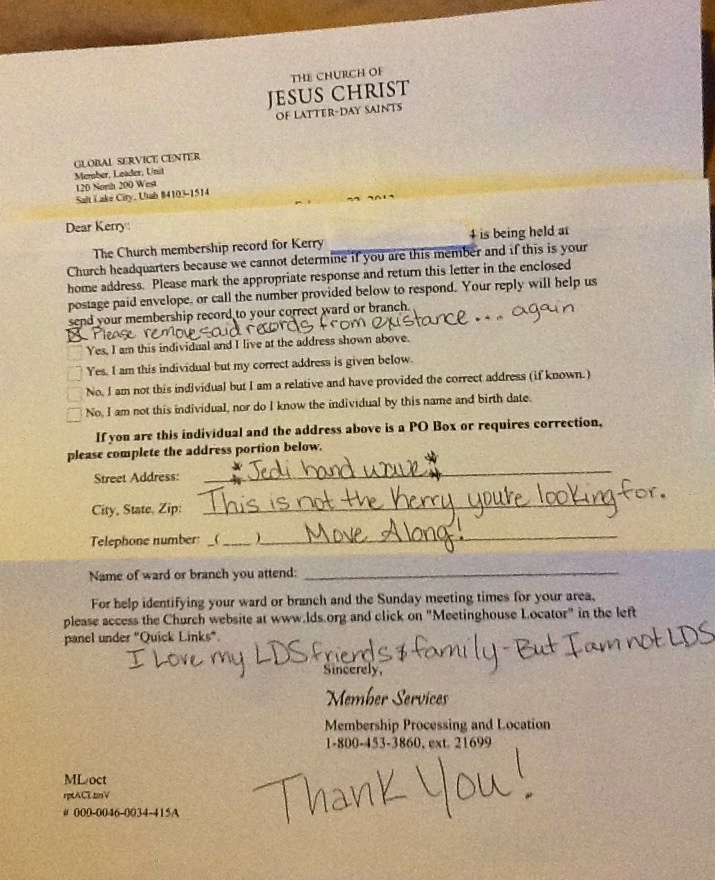 THE CHURCH OF
JESUS CHRIST
OF LATTER-DAY SAINTS
GLOBAL SERVICE CENTER
Member, Leader, Unit
120 North 200 West
Salt Lake City, Utah 84103-1514
Dear Kerry:
The Church membership record for Kerry is being held at
Church headquarters because we cannot determine if you are this member and if this is your
home address. Please mark the appropriate response and return this letter in the enclosed
postage paid envelope, or call the number provided below to respond. Your reply will help us
send your membership record to your correct ward or branch.
Please remove said records from existance... again
Yes, I am this individual and I live at the address shown above.
Yes, I am this individual but my correct address is given below.
No, I am not this individual but I am a relative and have provided the correct address (if known.)
No, I am not this individual, nor do I know the individual by this name and birth date.
If you are this individual and the address above is a PO Box or requires correction,
please complete the address portion below.
Street Address: *Jedi hand wave*
City, State, Zip: This is not the Kerry you're looking for.
Telephone number: (___) Move Along!
Name of ward or branch you attend:
For help identifying your ward or branch and the Sunday meeting times for your area,
please access the Church website at www.lds.org and click on "Meetinghouse Locator" in the left
panel under "Quick Links".
I Love my LDS friends & family - But I am not LDS
Sincerely,
Member Services
Membership Processing and Location
1-800-453-3860, ext. 21699
Thank You!
ML/oct
# 000-0046-0034-415A